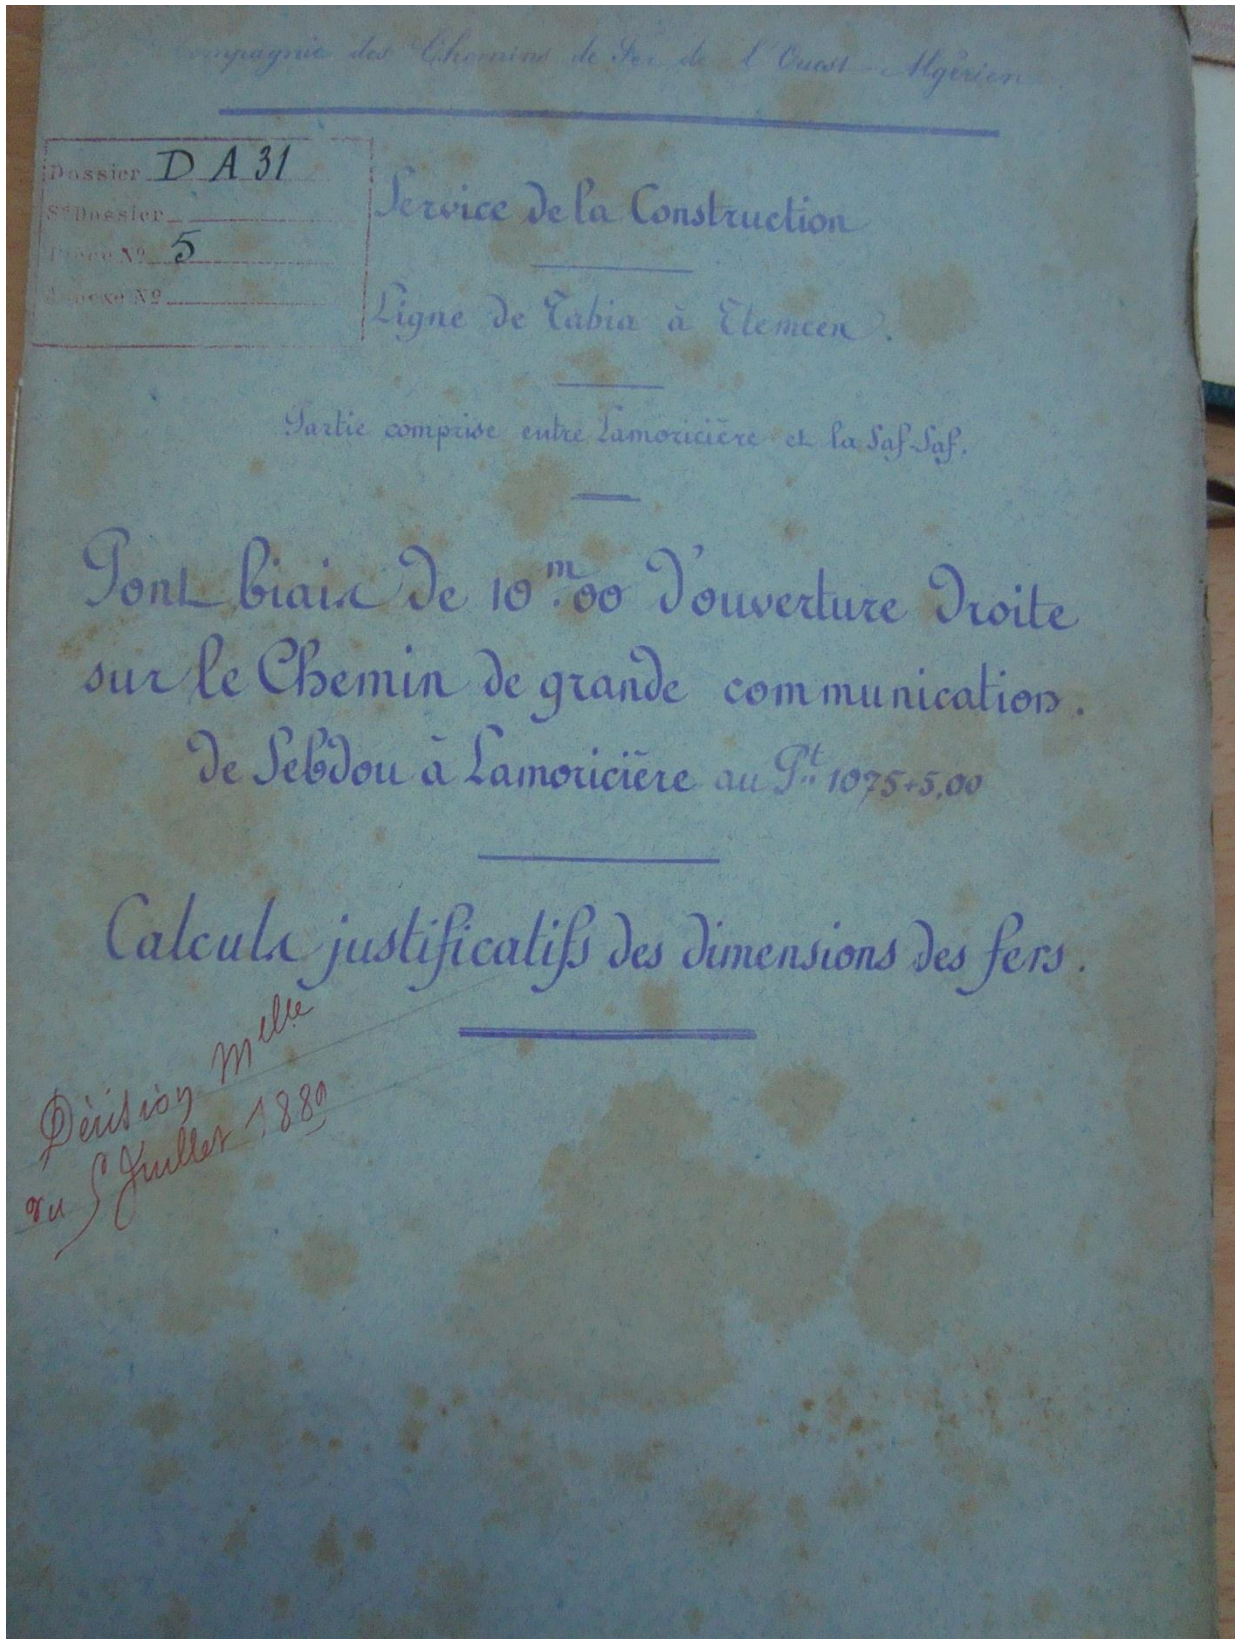 Compagnie des Chemins de Fer de l'Ouest-Algérien
Dossier D A 31
Ss Dossier
Pièce No 5
Annexe No
Service de la Construction
Ligne de Tabia à Tlemcen.
Partie comprise entre Lamoricière et la Saf-Saf.
Pont biais de 10m.00 d'ouverture droite
sur le Chemin de grande communication.
de Sebdou à Lamoricière au Pt 1075+5,00
Calculs justificatifs des dimensions des fers.
Décision Melle
du 5 Juillet 1889